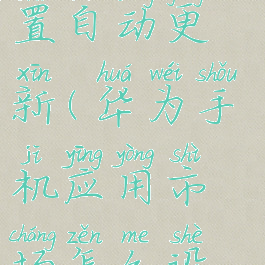 置自动更
xīn huá wéi shǒu
新(华为手
jī yīng yòng shì
机应用市
chǎng zěn me shè
场怎么设